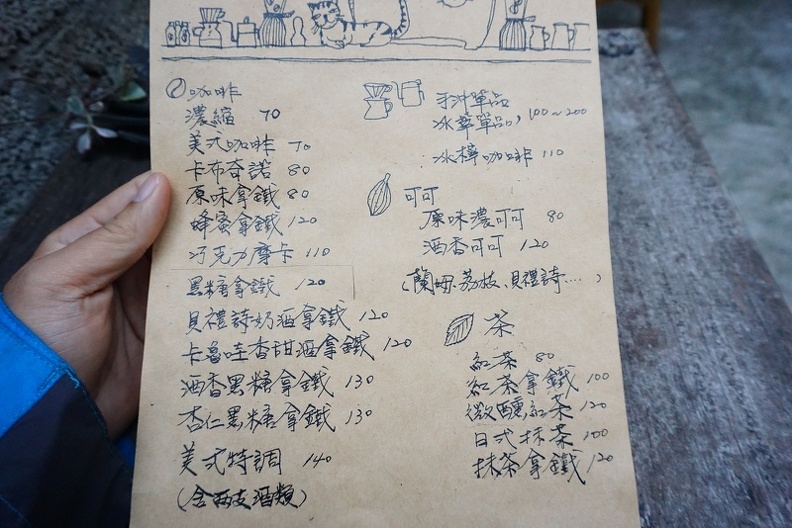 咖啡
濃縮 70
美式咖啡 70
卡布奇諾 80
原味拿鐵 80
蜂蜜拿鐵 120
巧克力摩卡 110
黑糖拿鐵 120
貝禮詩奶酒拿鐵 120
卡魯哇香甜酒拿鐵 120
酒香黑糖拿鐵 130
杏仁黑糖拿鐵 130
美式特調 140
(含兩支酒類)
手沖單品
冰萃單品, 100~200
冰檸咖啡 110
可可
原味濃可可 80
酒香可可 120
(蘭姆.荔枝.貝禮詩....)
茶
紅茶 80
紅茶拿鐵 100
微醺紅茶 120
日式抹茶 100
抹茶拿鐵 120